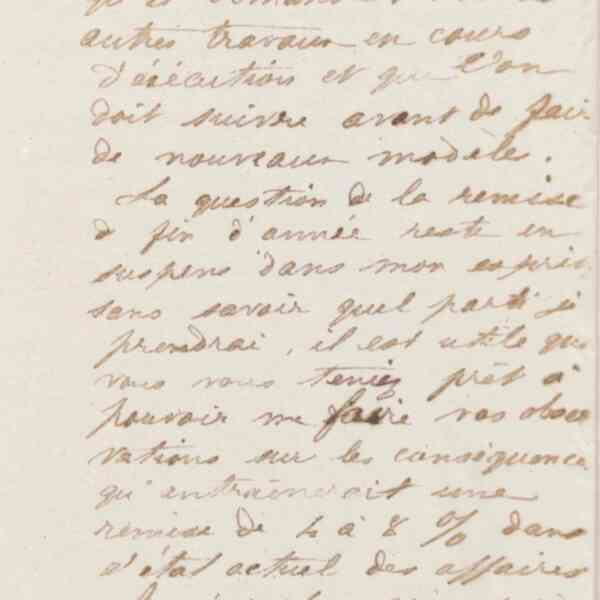 autres travaux en cours
d'exécution et que l'on
doit suivre avant de fair
de nouveaux modèles.
La question de la remise
d fin d'année reste en
suspens dans mon esprit
sans savoir quel parti je
prendrai, il est utile que
vous vous teniez prêt à
pouvoir me faire vos obser
vations sur les conséquences
qu'entraînerait une
remise de 4 à 8 % dans
l'état actuel des affaires